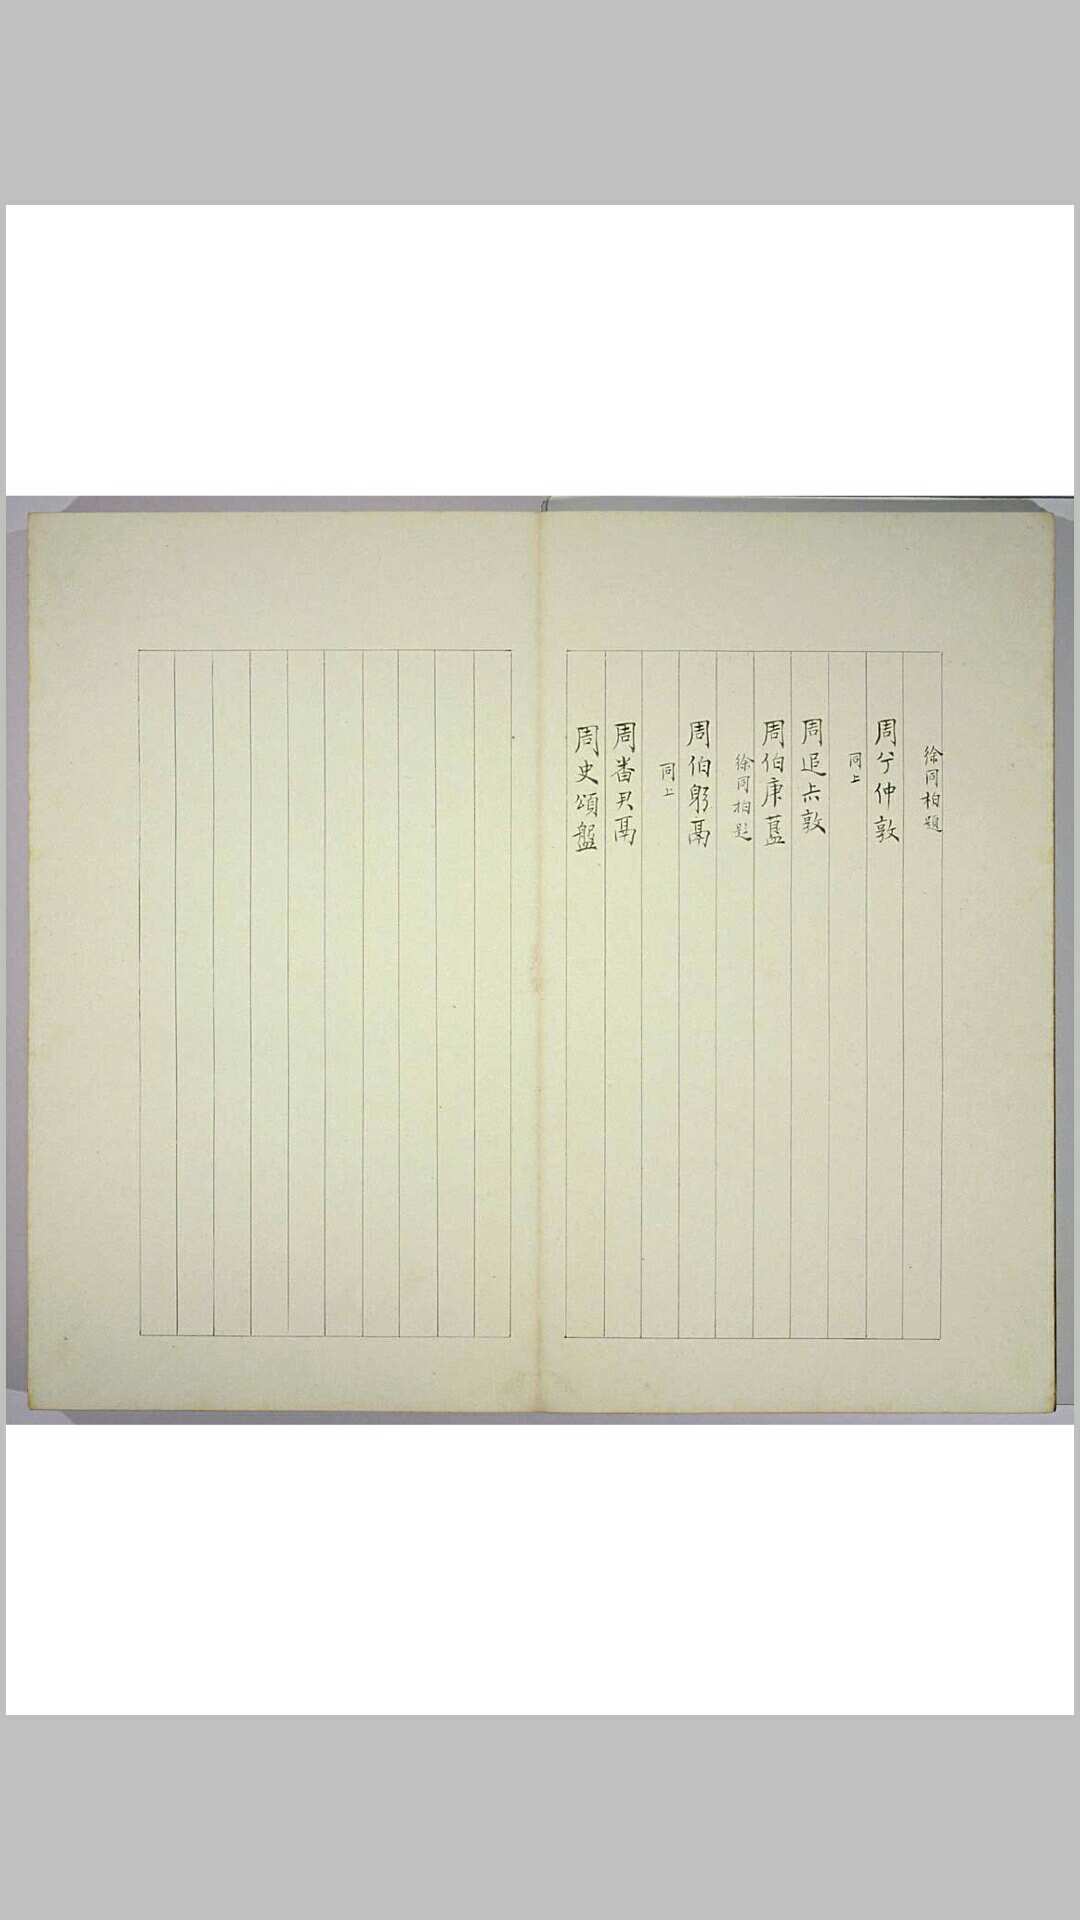 徐同柏題
周兮仲敦
同上
周追尗敦
周伯庚簋
徐同柏題
周伯躬鬲
同上
周番尹鬲
周史頌盤